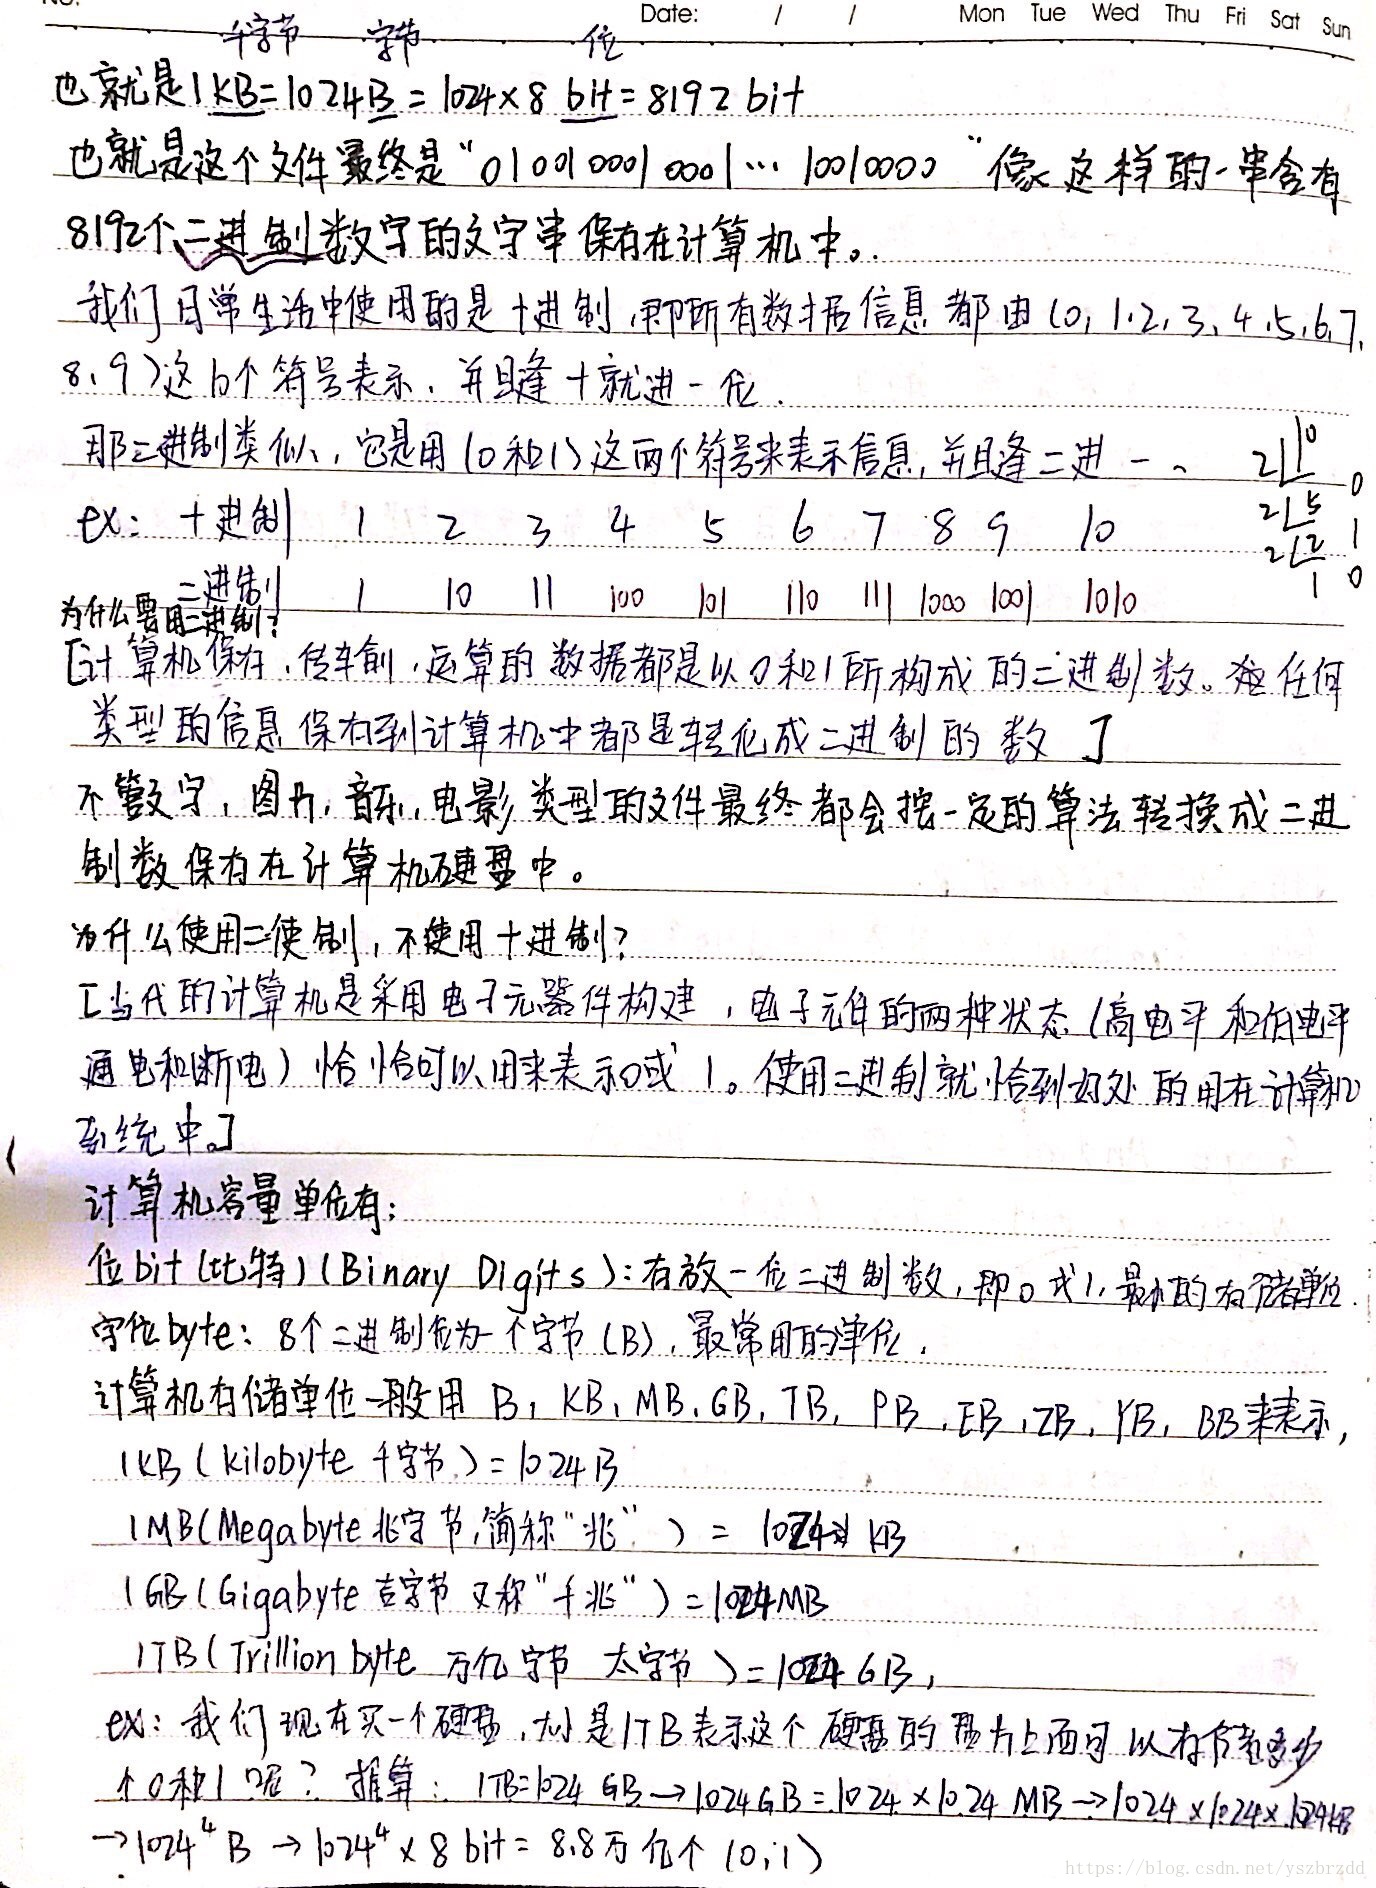 No.
Date: / / Mon Tue Wed Thu Fri Sat Sun
千字节 字节 位
也就是1KB=1024B=1024×8 bit=8192 bit
也就是这个文件最终是“0100100010001…10010000”像这样的一串含有
8192个二进制数字的文字串保存在计算机中。
我们日常生活中使用的是十进制,即所有数据信息都由(0,1,2,3,4,5,6,7,
8,9)这10个符号表示,并且逢十就进一位.
那二进制类似,它是用(0和1)这两个符号来表示信息,并且逢二进一、
2 10 0
2 5 1
2 2 0
1
ex: 十进制 1 2 3 4 5 6 7 8 9 10
二进制 1 10 11 100 101 110 111 1000 1001 1010
为什么要用二进制?
[计算机保存、传输、运算的数据都是以0和1所构成的二进制数。任何
类型的信息保存到计算机中都是转化成二进制的数]
不管文字,图片,音乐,电影类型的文件最终都会按一定的算法转换成二进
制数保存在计算机硬盘中。
为什么使用二使制,不使用十进制?
[当代的计算机是采用电子元器件构建,电子元件的两种状态(高电平和低电平
通电和断电)恰恰可以用来表示0或1。使用二进制就恰到好处的用在计算机
系统中。]
计算机容量单位有:
位bit(比特)(Binary Digits):存放一位二进制数,即0或1,最小的存储单位.
字位byte: 8个二进制位为一个字节(B),最常用的单位.
计算机存储单位一般用 B, KB, MB, GB, TB, PB, EB, ZB, YB, BB来表示,
1KB(kilobyte 千字节)=1024B
1MB(Megabyte 兆字节,简称“兆”)= 1024 KB
1GB(Gigabyte 吉字节 又称“千兆”)=1024MB
1TB(Trillion byte 万亿字节 太字节)=1024GB,
ex: 我们现在买一个硬盘,大小是1TB表示这个硬盘的盘片上面可以存储多少
个0和1呢? 推算: 1TB=1024 GB→1024GB=1024×1024 MB→1024×1024×1024KB
→1024⁴B→1024⁴×8 bit=8.8万亿个(0,1)
https://blog.csdn.net/yszbrzdd